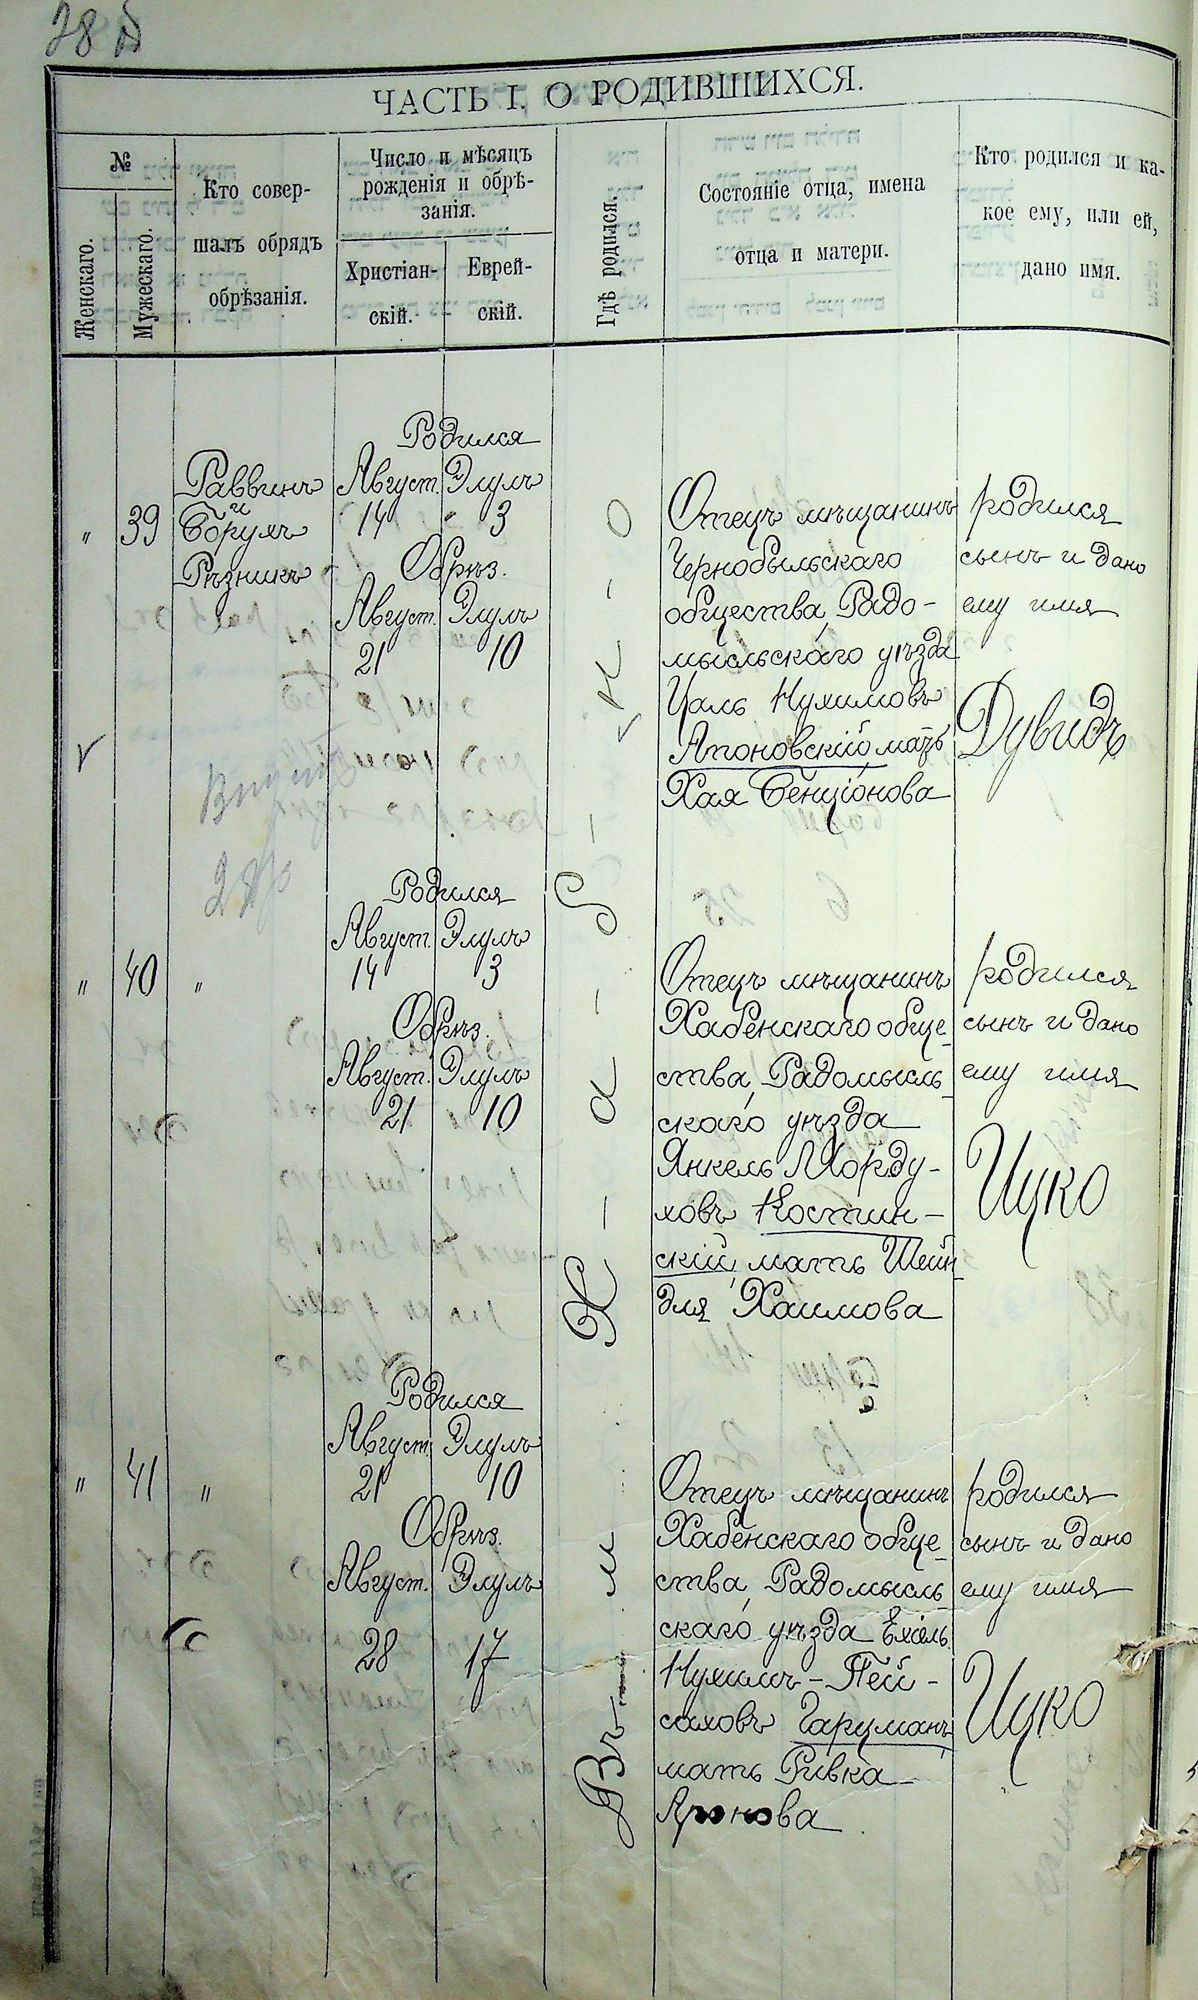 28
ЧАСТЬ I. О РОДИВШИХСЯ.
№
Женскаго.
Мужескаго.
Кто совер-
шалъ обрядъ
обрѣзанія.
Число и мѣсяцъ
рожденія и обрѣ-
занія.
Христіан-
скій.
Еврей-
скій.
Гдѣ родился.
Состояніе отца, имена
отца и матери.
Кто родился и ка-
кое ему, или ей,
дано имя.
Въ м. Х-а-б-н-о
" 39
Раввинъ
и
Борухъ
Рѣзникъ
Родился
Август. Элулъ
14 3
Обрѣз.
Август. Элулъ
21 10
Отецъ мѣщанинъ
Чернобыльскаго
общества, Радо-
мысльскаго уѣзда
Цаль Нухимовъ
Апоновскій мать
Хая Бенціонова
родился
сынъ и дано
ему имя
Дувидъ
" 40 "
Родился
Август. Элулъ
14 3
Обрѣз.
Август. Элулъ
21 10
Отецъ мѣщанинъ
Хабенскаго обще-
ства, Радомысль-
скаго уѣзда
Янкель Морду-
ховъ Костин-
скій, мать Шейн-
для Хаимова
родился
сынъ и дано
ему имя
Ицко
" 41 "
Родился
Август. Элулъ
21 10
Обрѣз.
Август. Элулъ
28 17
Отецъ мѣщанинъ
Хабенскаго обще-
ства, Радомысль-
скаго уѣзда Ехіель
Нухимъ-Пей-
саховъ Гарцманъ,
мать Ривка
Аронова
родился
сынъ и дано
ему имя
Ицко